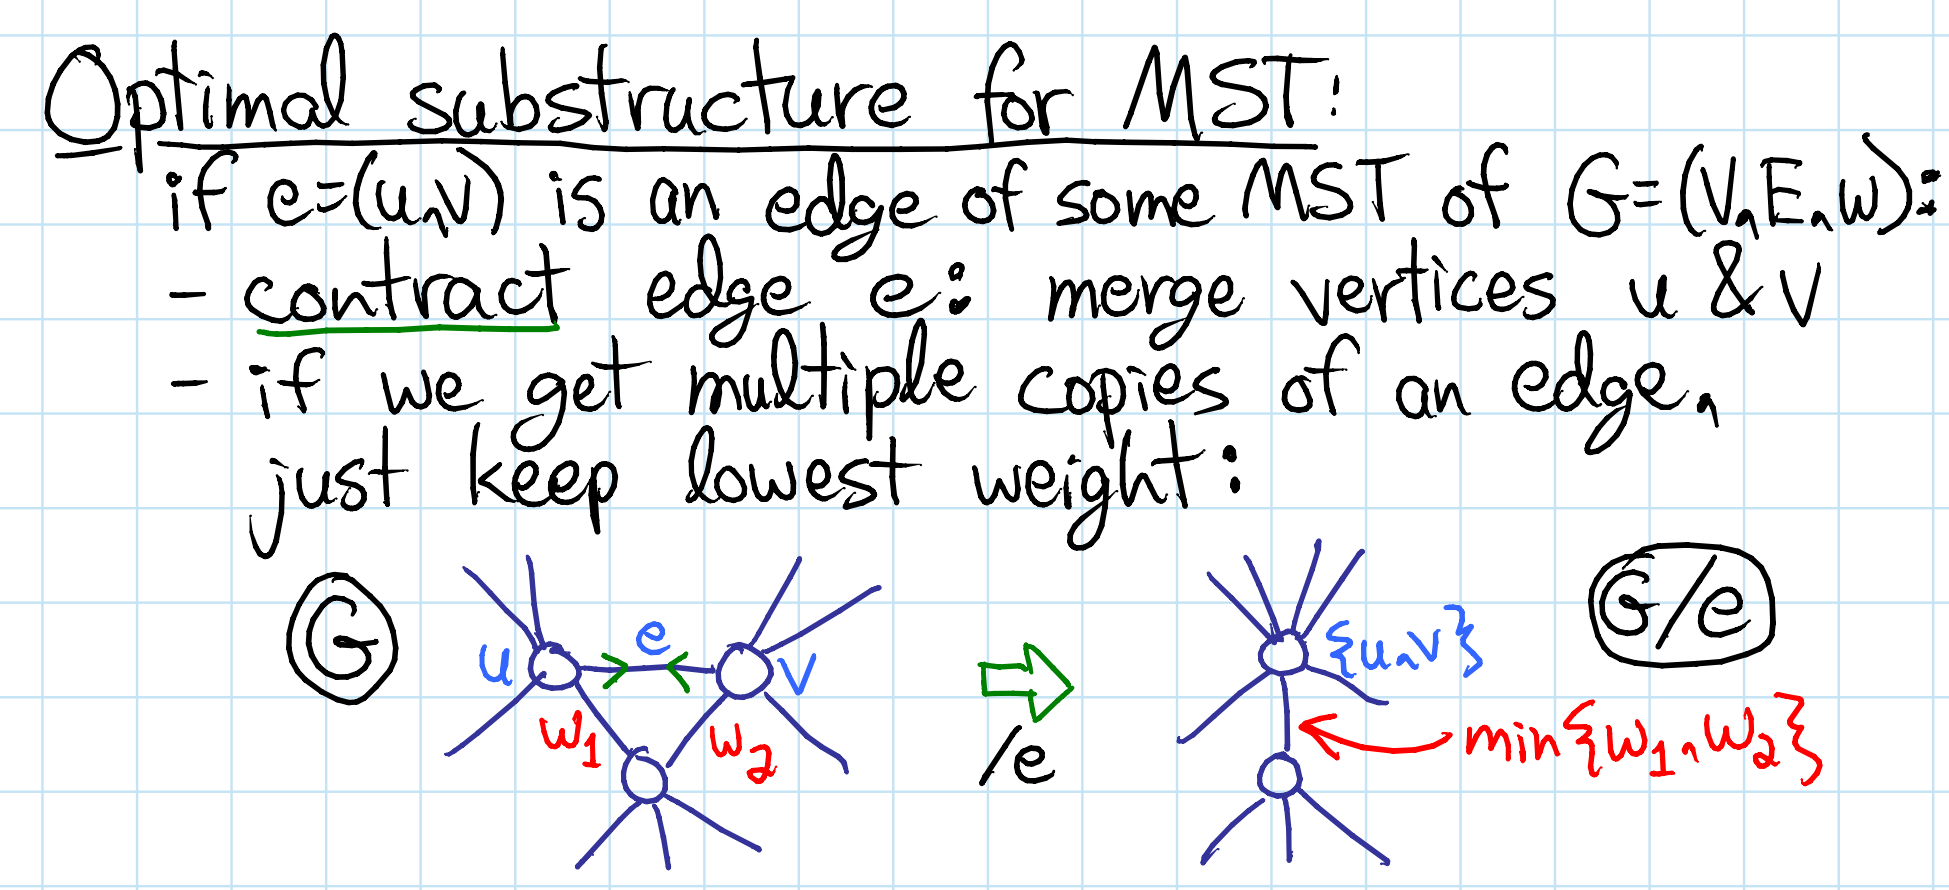 Optimal substructure for MST:
if e=(u,v) is an edge of some MST of G=(V,E,w):
- contract edge e: merge vertices u & v
- if we get multiple copies of an edge,
just keep lowest weight:
G
u
e
v
w₁
w₂
/e
{u,v}
G/e
min{w₁,w₂}